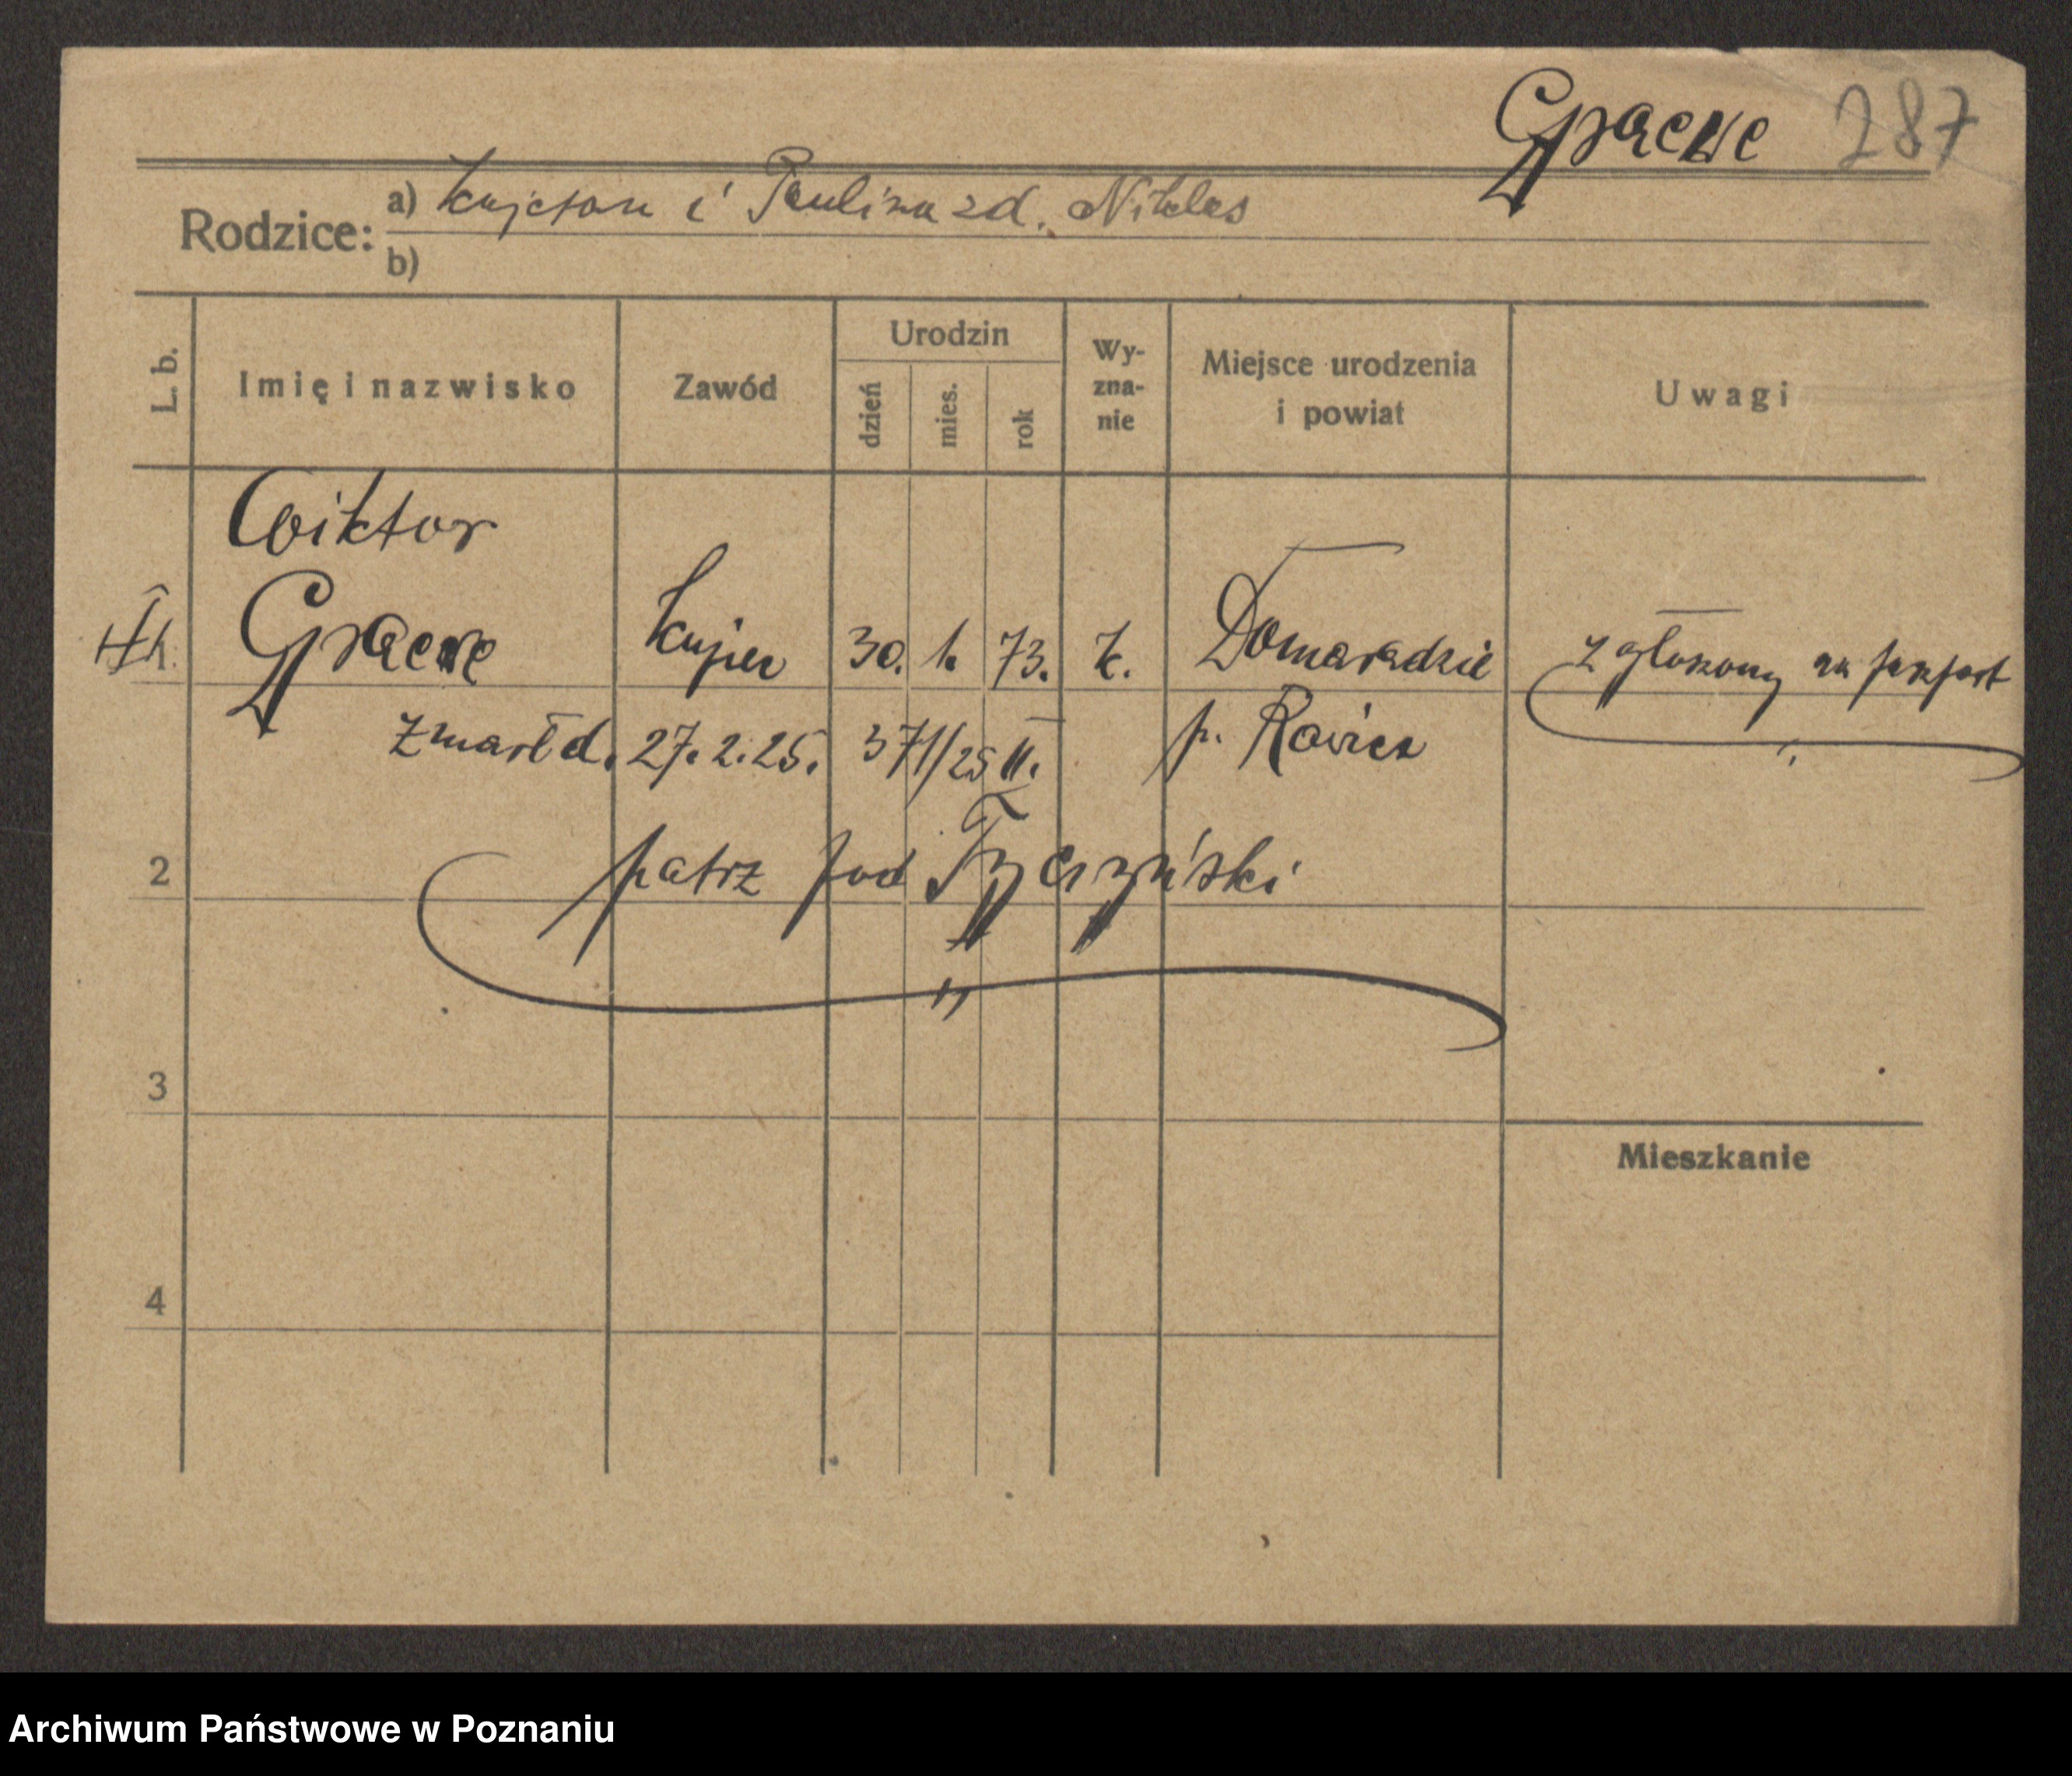 287
Rodzice: a) Kajetan i Paulina zd. Nikles
b)
L. b. Imię i nazwisko Zawód Urodzin dzień mies. rok Wyznanie Miejsce urodzenia i powiat Uwagi
Wiktor
Kupiec 30. 1. 73. k. Domaradzie zgłoszony na paszport
zmarł d. 27. 2. 25. 371/25 II. p. Rawicz
2 patrz pod
3
Mieszkanie
4
Archiwum Państwowe w Poznaniu